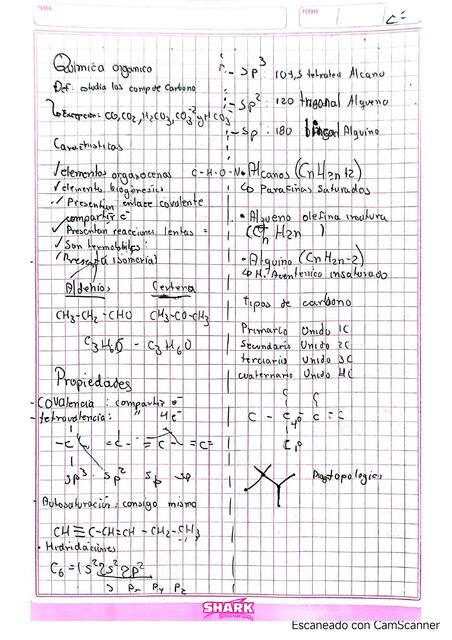 TEMA:
FECHA:
Química organico
Def. estudia los comp de carbono
CO, CO2, H2CO3, CO3-2 y HCO3
Caracteristicas
✓ elementos organocenos C - H - O - N
✓ elementos biogenesicos
✓ Presentan enlace covalente
compartir e-
✓ Presentan reacciones lentas =
✓ Son termolabiles:
✓ Presenta isomeria)
Aldehios Cetona
CH3-CH2-CHO CH3-CO-CH3
C3H6O - C3H6O
Propiedades
- Covalencia: compartir e-
- tetravalencia: " 4e-
-C- =C- ≡C- =C=
sp3 sp2 sp sp
Autosaturación: consigo mismo
CH≡C-CH=CH-CH2-CH3
• Hidridaciones
C6 = 1s2 2s2 2p2
s Px Py Pz
- sp3 109,5 tetraéd Alcano
- sp2: 120 trigonal Alqueno
- sp: 180 Alquino
• Alcanos (CnH2n+2)
↳ Parafinas saturados
• Alqueno olefina insatura
(CnH2n )
• Alquino (CnH2n-2)
insaturado
tipos de carbono
Primario Unido 1C
Secundario Unido 2C
terciario Unido 3C
cuaternario Unido 4C
C C
C - C - C = C
SHARK
Escaneado con CamScanner